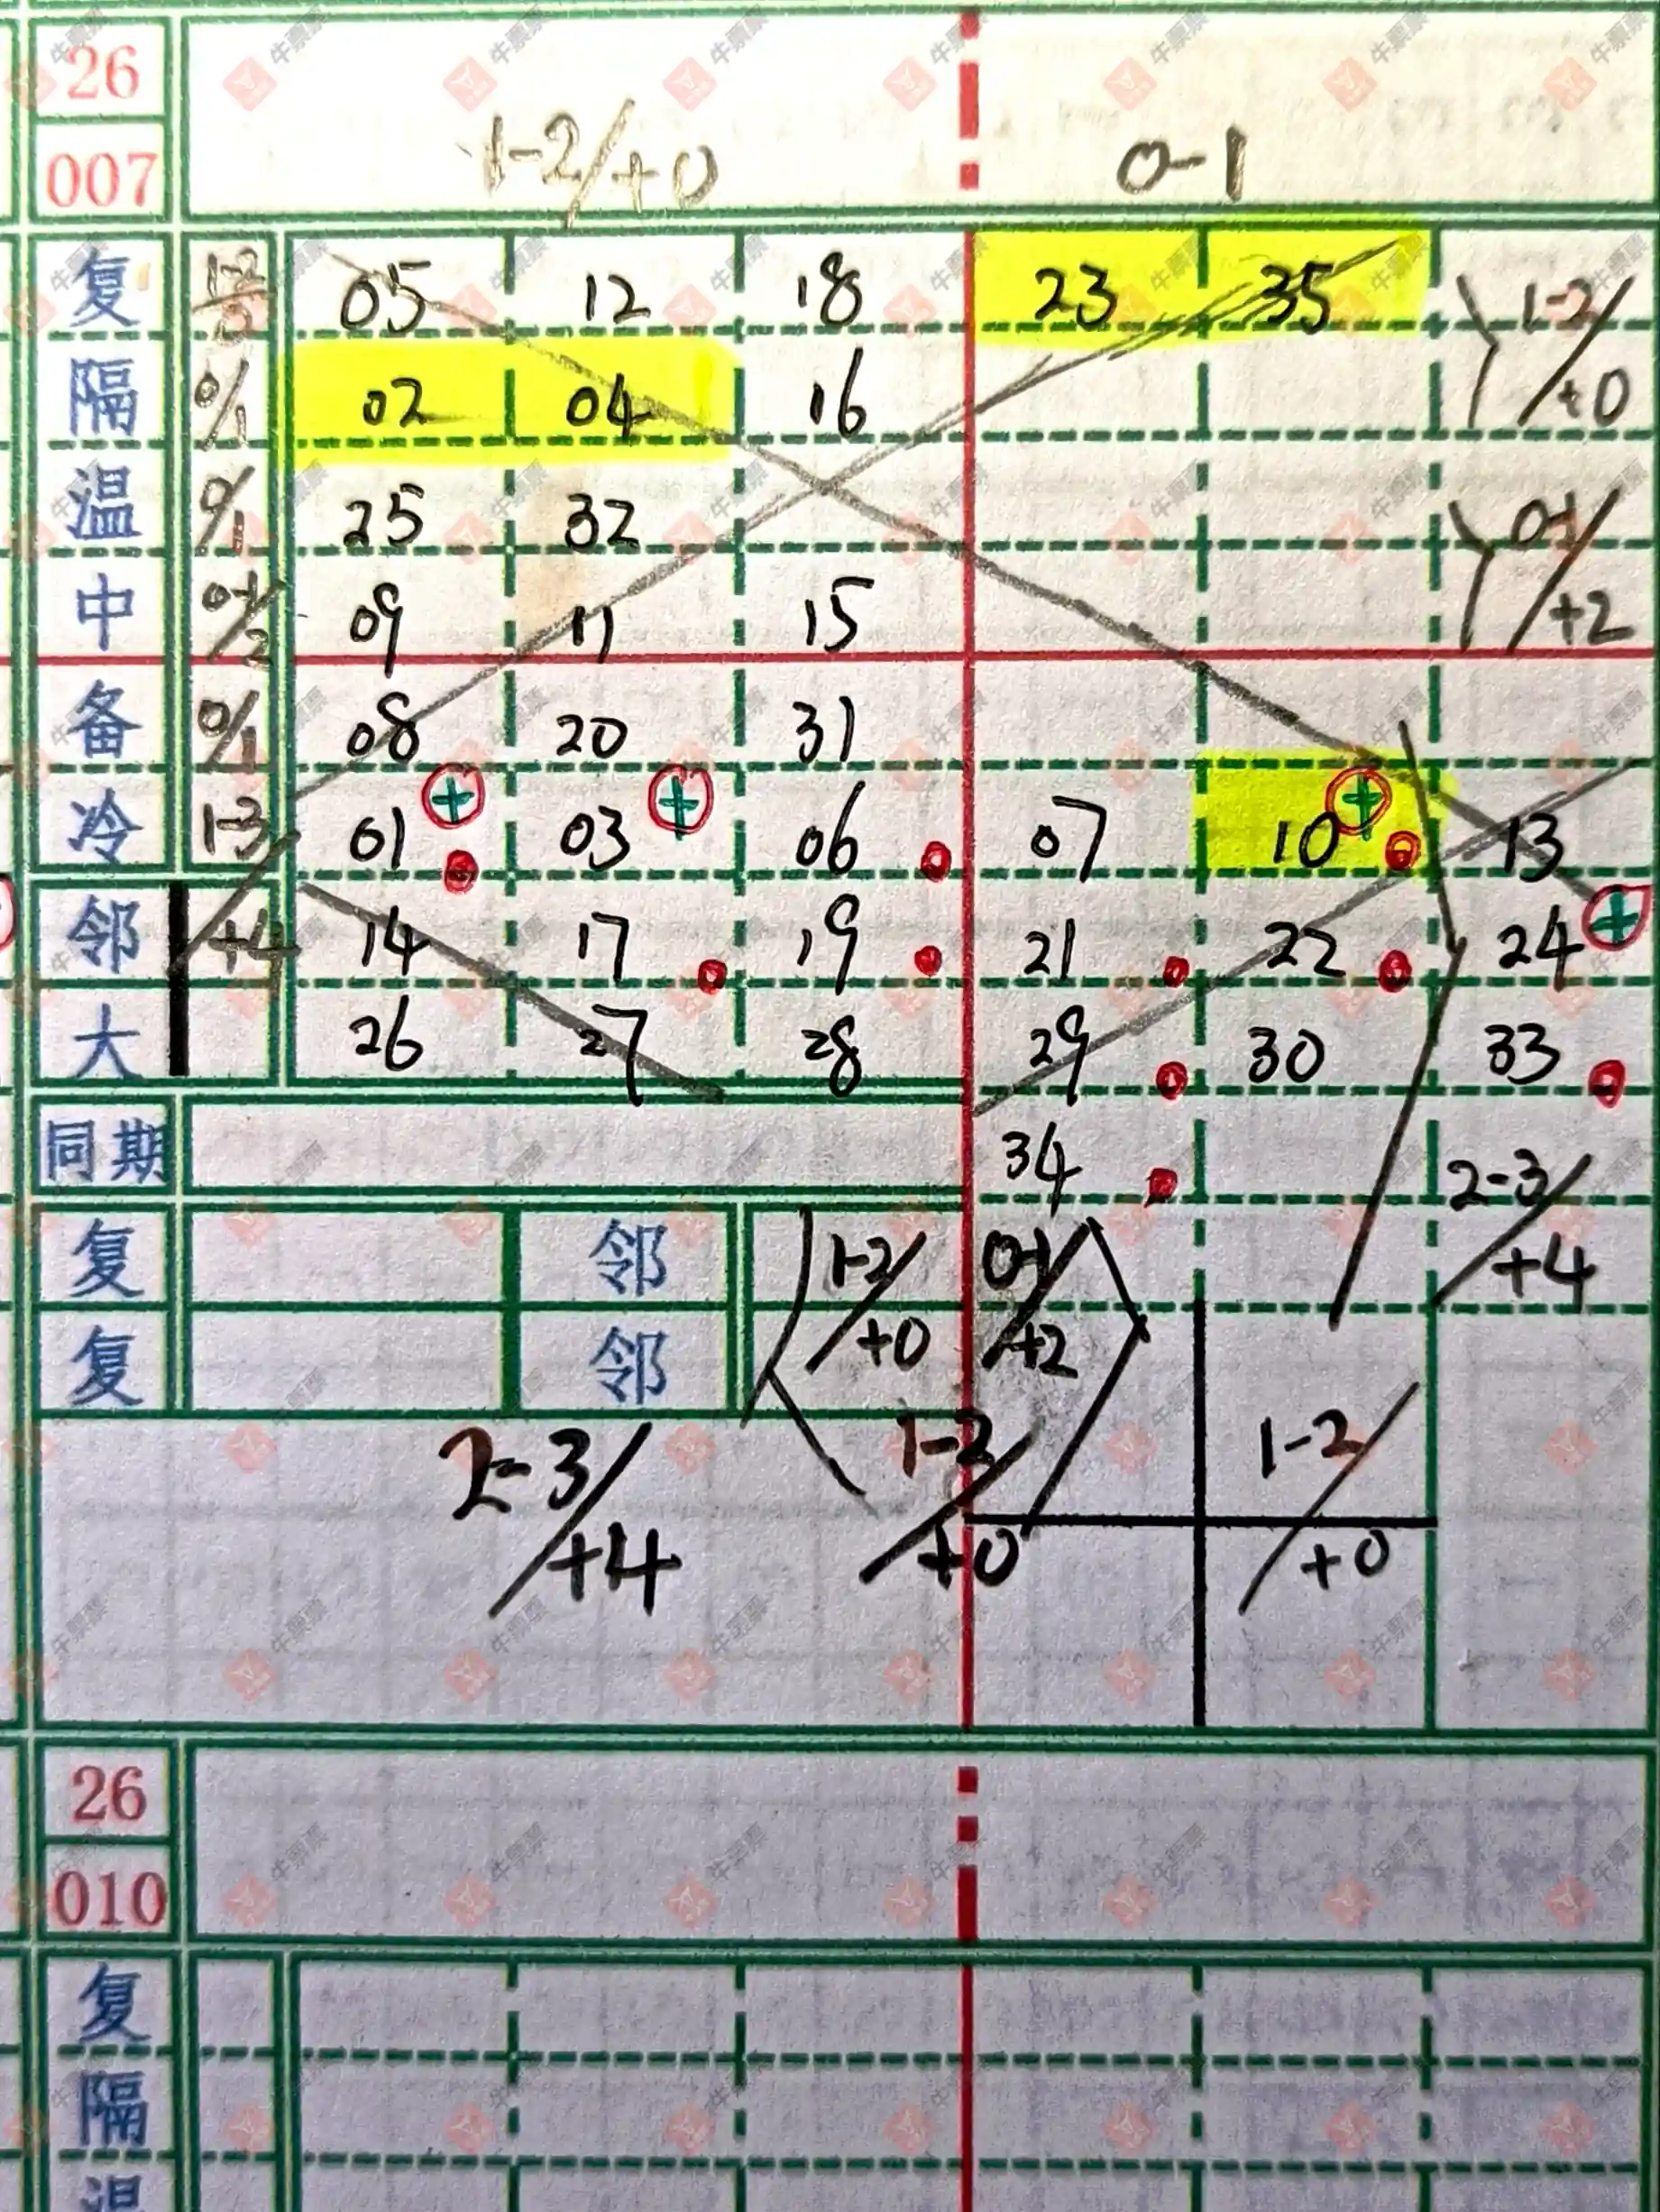 26
007 1-2/+0 0-1
复 05 12 18 23 35 1-2/+0
隔 0/1 02 04 16
温 0/1 25 32 0-1/+2
中 0-1/2 09 11 15
备 0/1 08 20 31
冷 1-3/+4 01 03 06 07 10 13
邻 14 17 19 21 22 24
大 26 27 28 29 30 33
同期 34 2-3/+4
复 邻 1-2/+0 0-1/+2
复 邻
2-3/+4 1-2/+0 1-2/+0
26
010
复
隔
温
牛票票